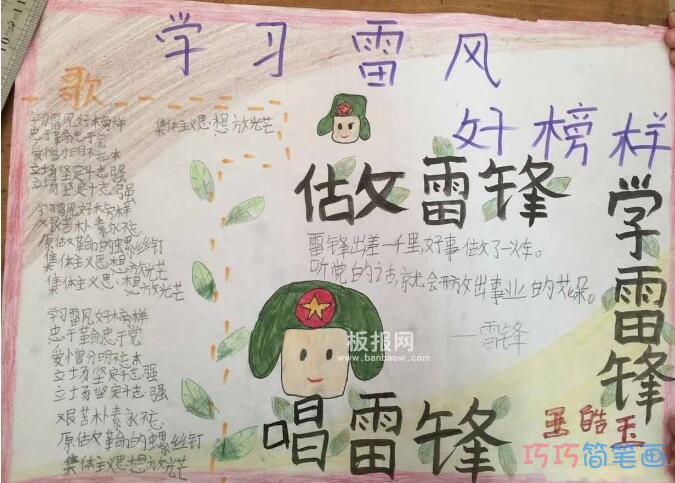 学习雷风
好榜样
歌
学习雷风好榜样
忠于革命忠于党
爱憎分明不忘本
立场坚定斗志强
立场坚定斗志强
学习雷风好榜样
艰苦朴素永不忘
原做革命的螺丝钉
集体主义思想放光芒
集体主义思想放光芒
学习雷风好榜样
忠于革命忠于党
爱憎分明不忘本
立场坚定斗志强
立场坚定斗志强
艰苦朴素永不忘
原做革命的螺丝钉
集体主义思想放光芒
集体主义思想放光芒
做雷锋
雷锋出差一千里,好事做了一火车。
听党的话,就会开放出事业的花朵。
——雷锋
学雷锋
唱雷锋
板报网
www.banbaow.com
皓玉
巧巧简笔画